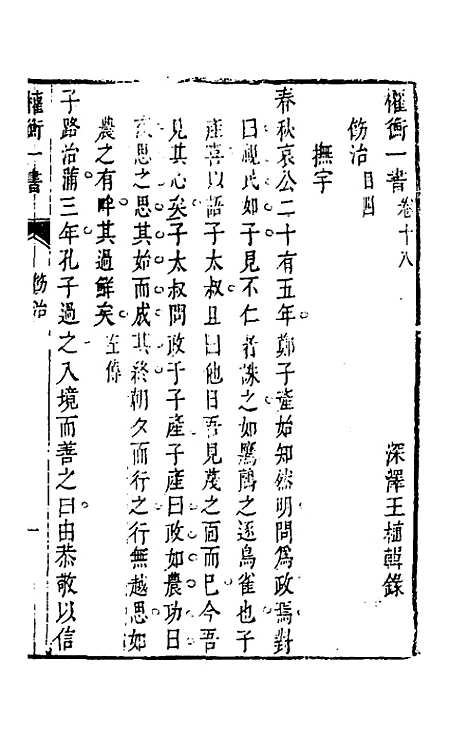 權衡一書卷十八
深澤王植輯錄
飭治目四
撫字
春秋哀公二十有五年鄭子產始知然明問爲政焉對
曰視民如子見不仁者誅之如鷹鸇之逐鳥雀也子
產喜以語子太叔且曰他日吾見蔑之面而已今吾
見其心矣子太叔問政于子產子產曰政如農功日
夜思之思其始而成其終朝夕而行之行無越思如
農之有畔其過鮮矣左傳
子路治蒲三年孔子過之入境而善之曰由恭敬以信
權衡一書
飭治
一